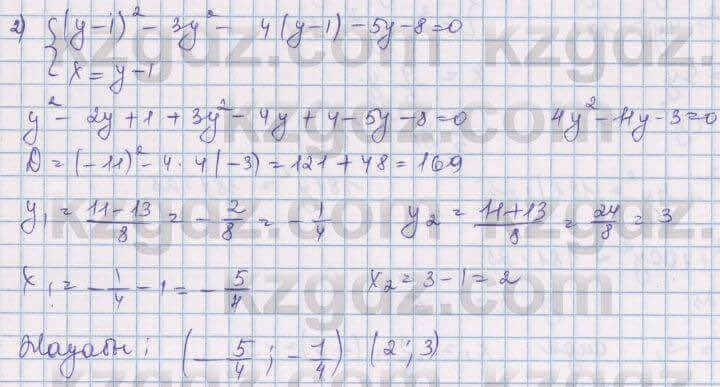 2) { (y-1)² - 3y² - 4(y-1) - 5y - 8 = 0
x = y - 1
y² - 2y + 1 + 3y² - 4y + 4 - 5y - 8 = 0 4y² - 11y - 3 = 0
D = (-11)² - 4·4(-3) = 121 + 48 = 169
y₁ = (11-13)/8 = -2/8 = -1/4 y₂ = (11+13)/8 = 24/8 = 3
x₁ = -1/4 - 1 = -5/4 x₂ = 3 - 1 = 2
Жауабы: (-5/4; -1/4) (2; 3)
kzgdz.com